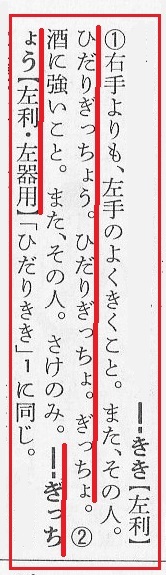 ━きき【左利】
①右手よりも、左手のよくきくこと。また、その人。
ひだりぎっちょう。ひだりぎっちょ。ぎっちょ。②
酒に強いこと。また、その人。さけのみ。━ぎっち
ょう【左利・左器用】「ひだりきき」1に同じ。